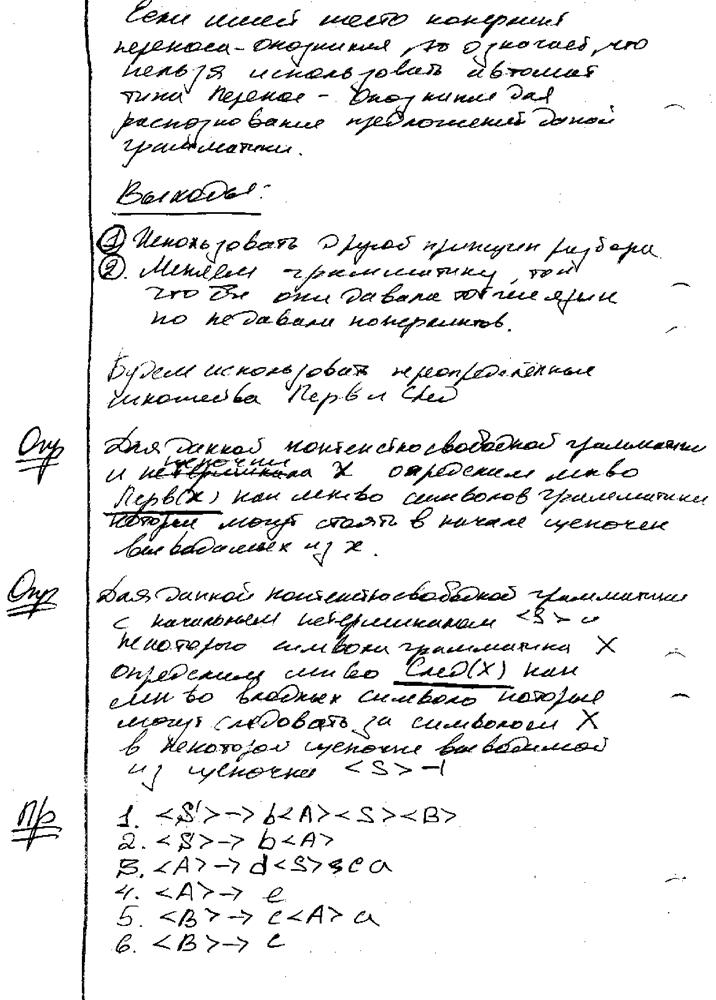 Если имеет место конфликт
переноса-опознания, то означает, что
нельзя использовать автомат
типа перенос - опознание для
распознования предложений даной
грамматики.
Выходы:
1 Использовать другой принцип разбора
2. Меняем грамматику, так
что бы они давала тот же язык
но не давали конфликтов.
Будем использовать переопределённые
множества Перв и След
Опр Для данной контекстно свободной грамматики
и цепочки X определим мн-во
Перв(X) как мн-во символов грамматики
которые могут стоять в начале цепочек
выводимых из x.
Опр Для данной контекстно свободной грамматики
с начальным нетерминалом <S> и
некоторого символа грамматики X
определим мн-во След(X) как
мн-во входных символо которые
могут следовать за символом X
в некоторой цепочке выводимой
из цепочки <S>⊣
Пр 1. <S>→b<A><S><B>
2. <S>→b<A>
3. <A>→d<S>ca
4. <A>→e
5. <B>→c<A>a
6. <B>→c